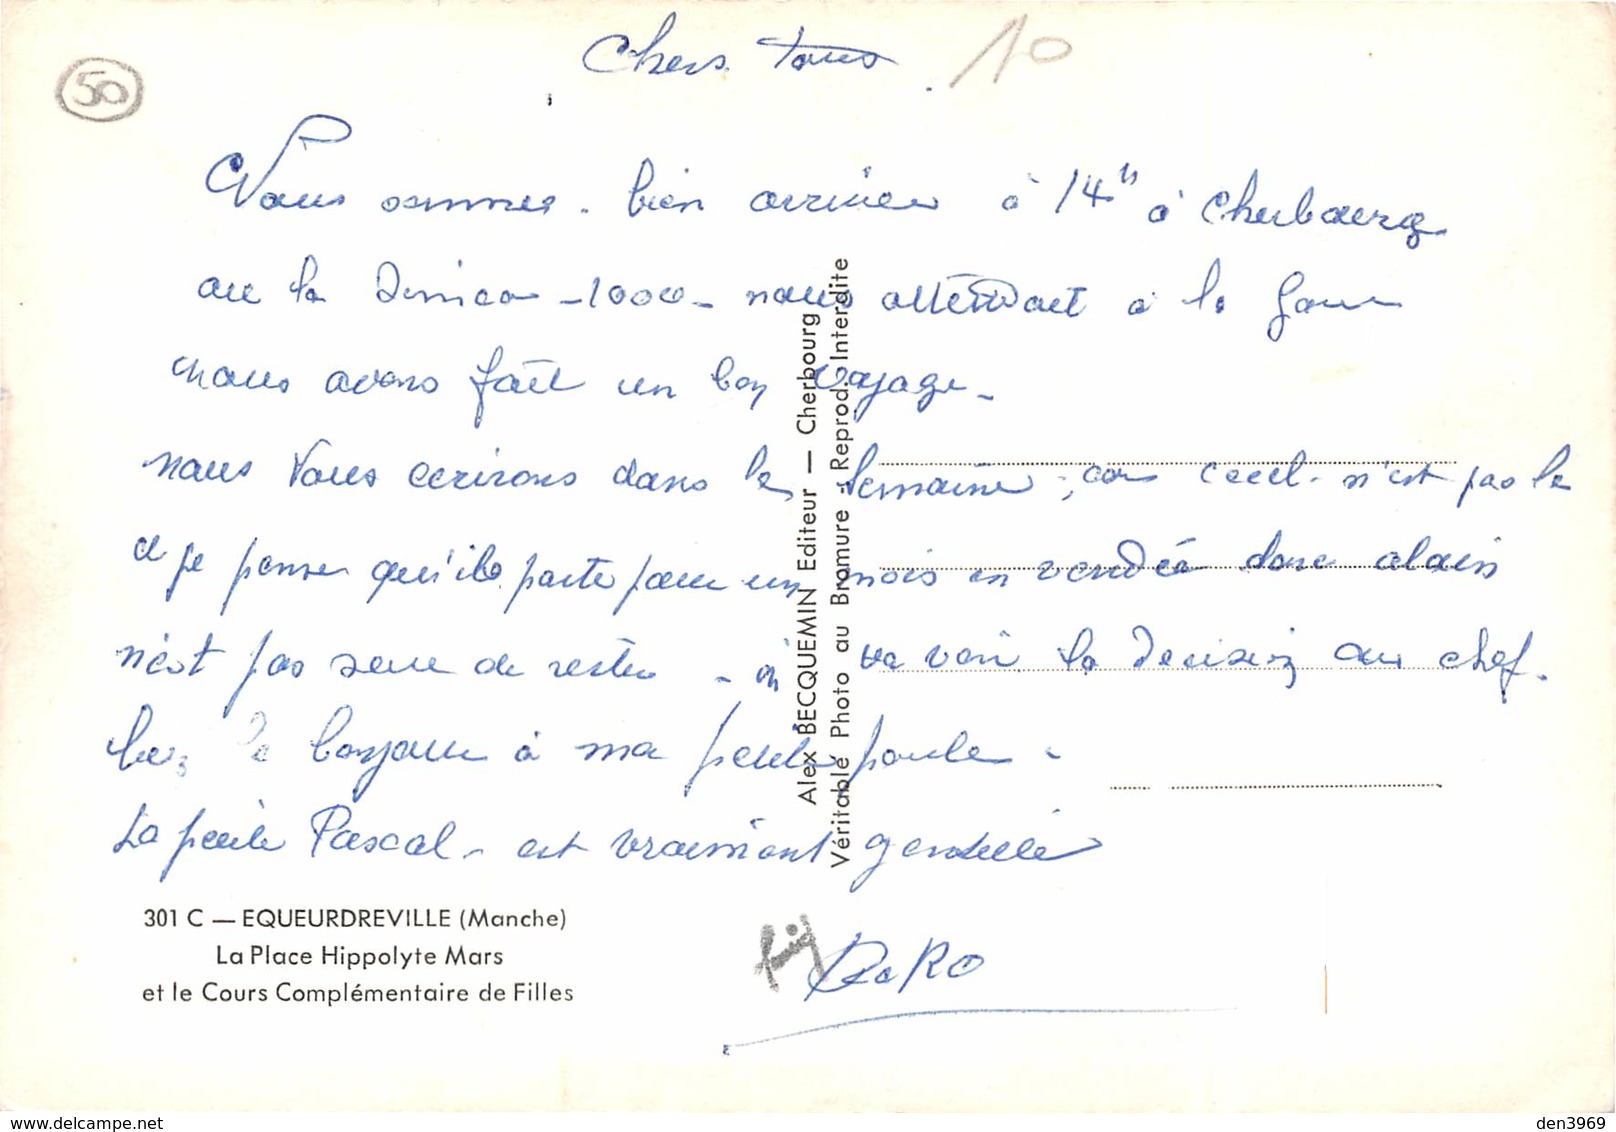 50
10
Chers tous
Nous sommes. bien arriver à 14h à Cherbourg
ou la Simca -1000- nous attendait à la Gare
nous avons fait un bon voyage -
nous vous ecrirons dans la semaine, car ceci n'est pas le
et je pense qu'ils parte pour un mois en vendée donc alain
n'est pas sure de rester - va voir la decision au chef.
le bonjour à ma petite poule -
La petite Pascal - est vraiment gentille
301 C — EQUEURDREVILLE (Manche)
La Place Hippolyte Mars
et le Cours Complémentaire de Filles
Alex BECQUEMIN Editeur — Cherbourg
Véritable Photo au Bromure - Reprod. Interdite
delcampe.net
den3969